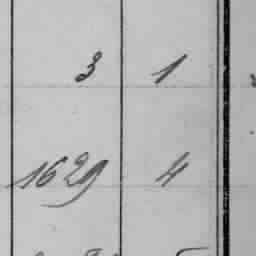 3 1
1629 4